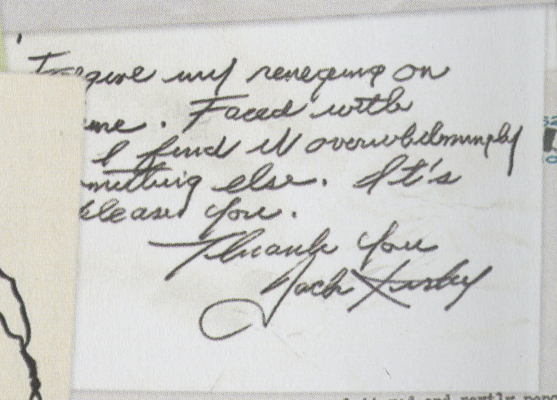 my reneging on
me. Faced with
I find it overwhelmingly
mething else. It's
please you.
Thank You
Jack Kirby